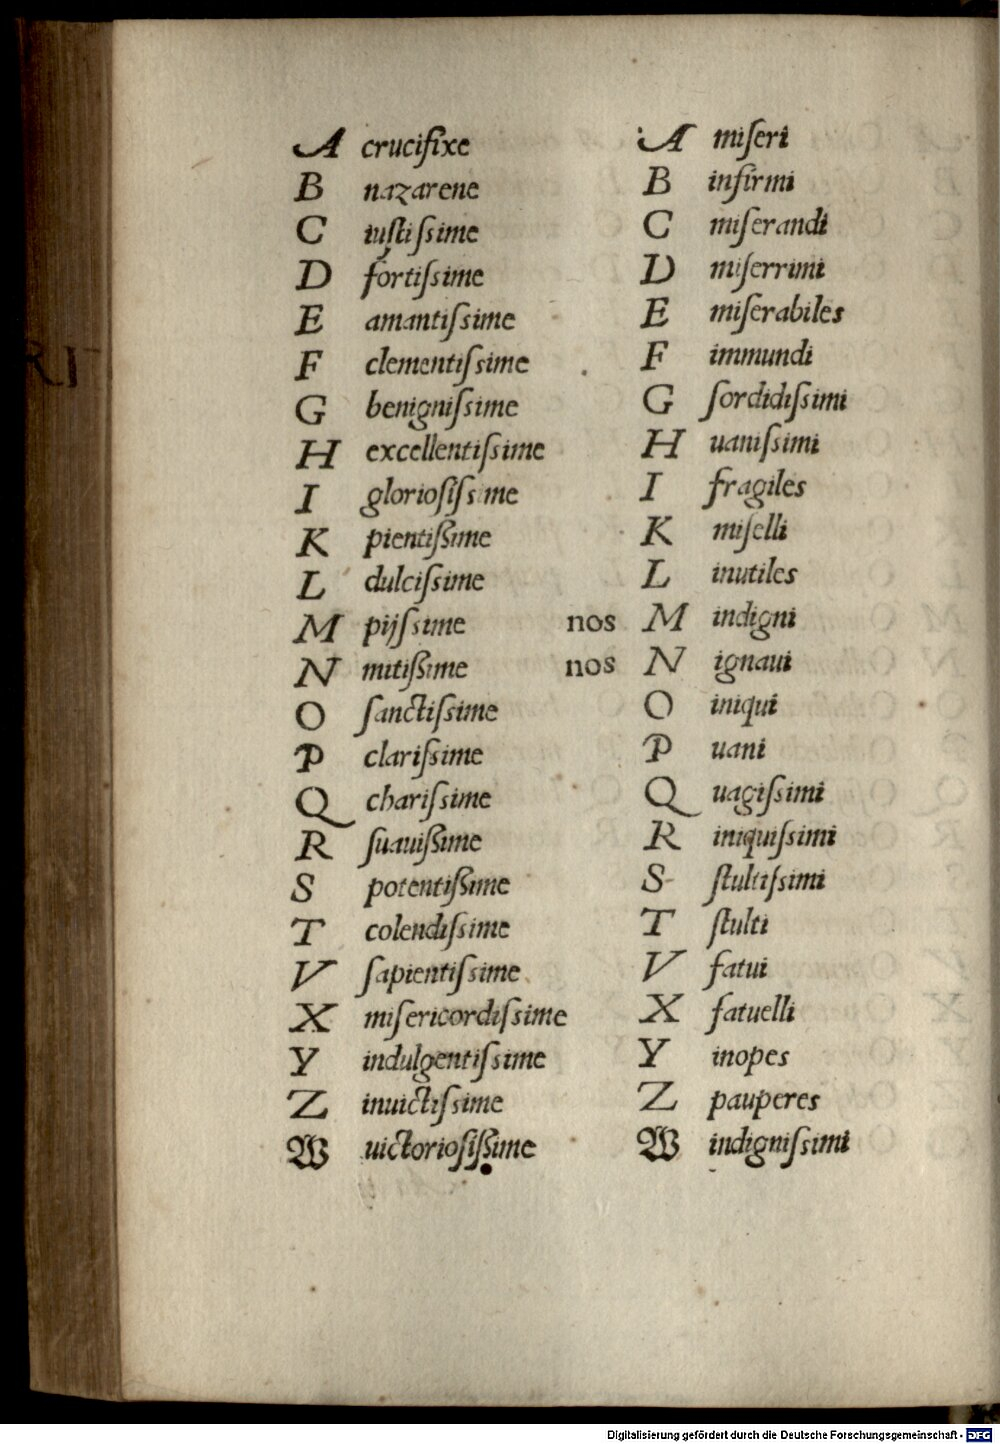 A crucifixe
B nazarene
C iuſtiſsime
D fortiſsime
E amantiſsime
F clementiſsime
G benigniſsime
H excellentiſsime
I glorioſiſsime
K pientiſsime
L dulciſsime
M pijſsime
N mitiſsime
O ſanctiſsime
P clariſsime
Q chariſsime
R ſuauiſsime
S potentiſsime
T colendiſsime
V ſapientiſsime
X miſericordiſsime
Y indulgentiſsime
Z inuictiſsime
W uictorioſiſsime
A miſeri
B infirmi
C miſerandi
D miſerrimi
E miſerabiles
F immundi
G ſordidiſsimi
H uaniſsimi
I fragiles
K miſelli
L inutiles
nos M indigni
nos N ignaui
O iniqui
P uani
Q uagiſsimi
R iniquiſsimi
S ſtultiſsimi
T ſtulti
V fatui
X fatuelli
Y inopes
Z pauperes
W indigniſsimi
Digitalisierung gefördert durch die Deutsche Forschungsgemeinschaft - DFG